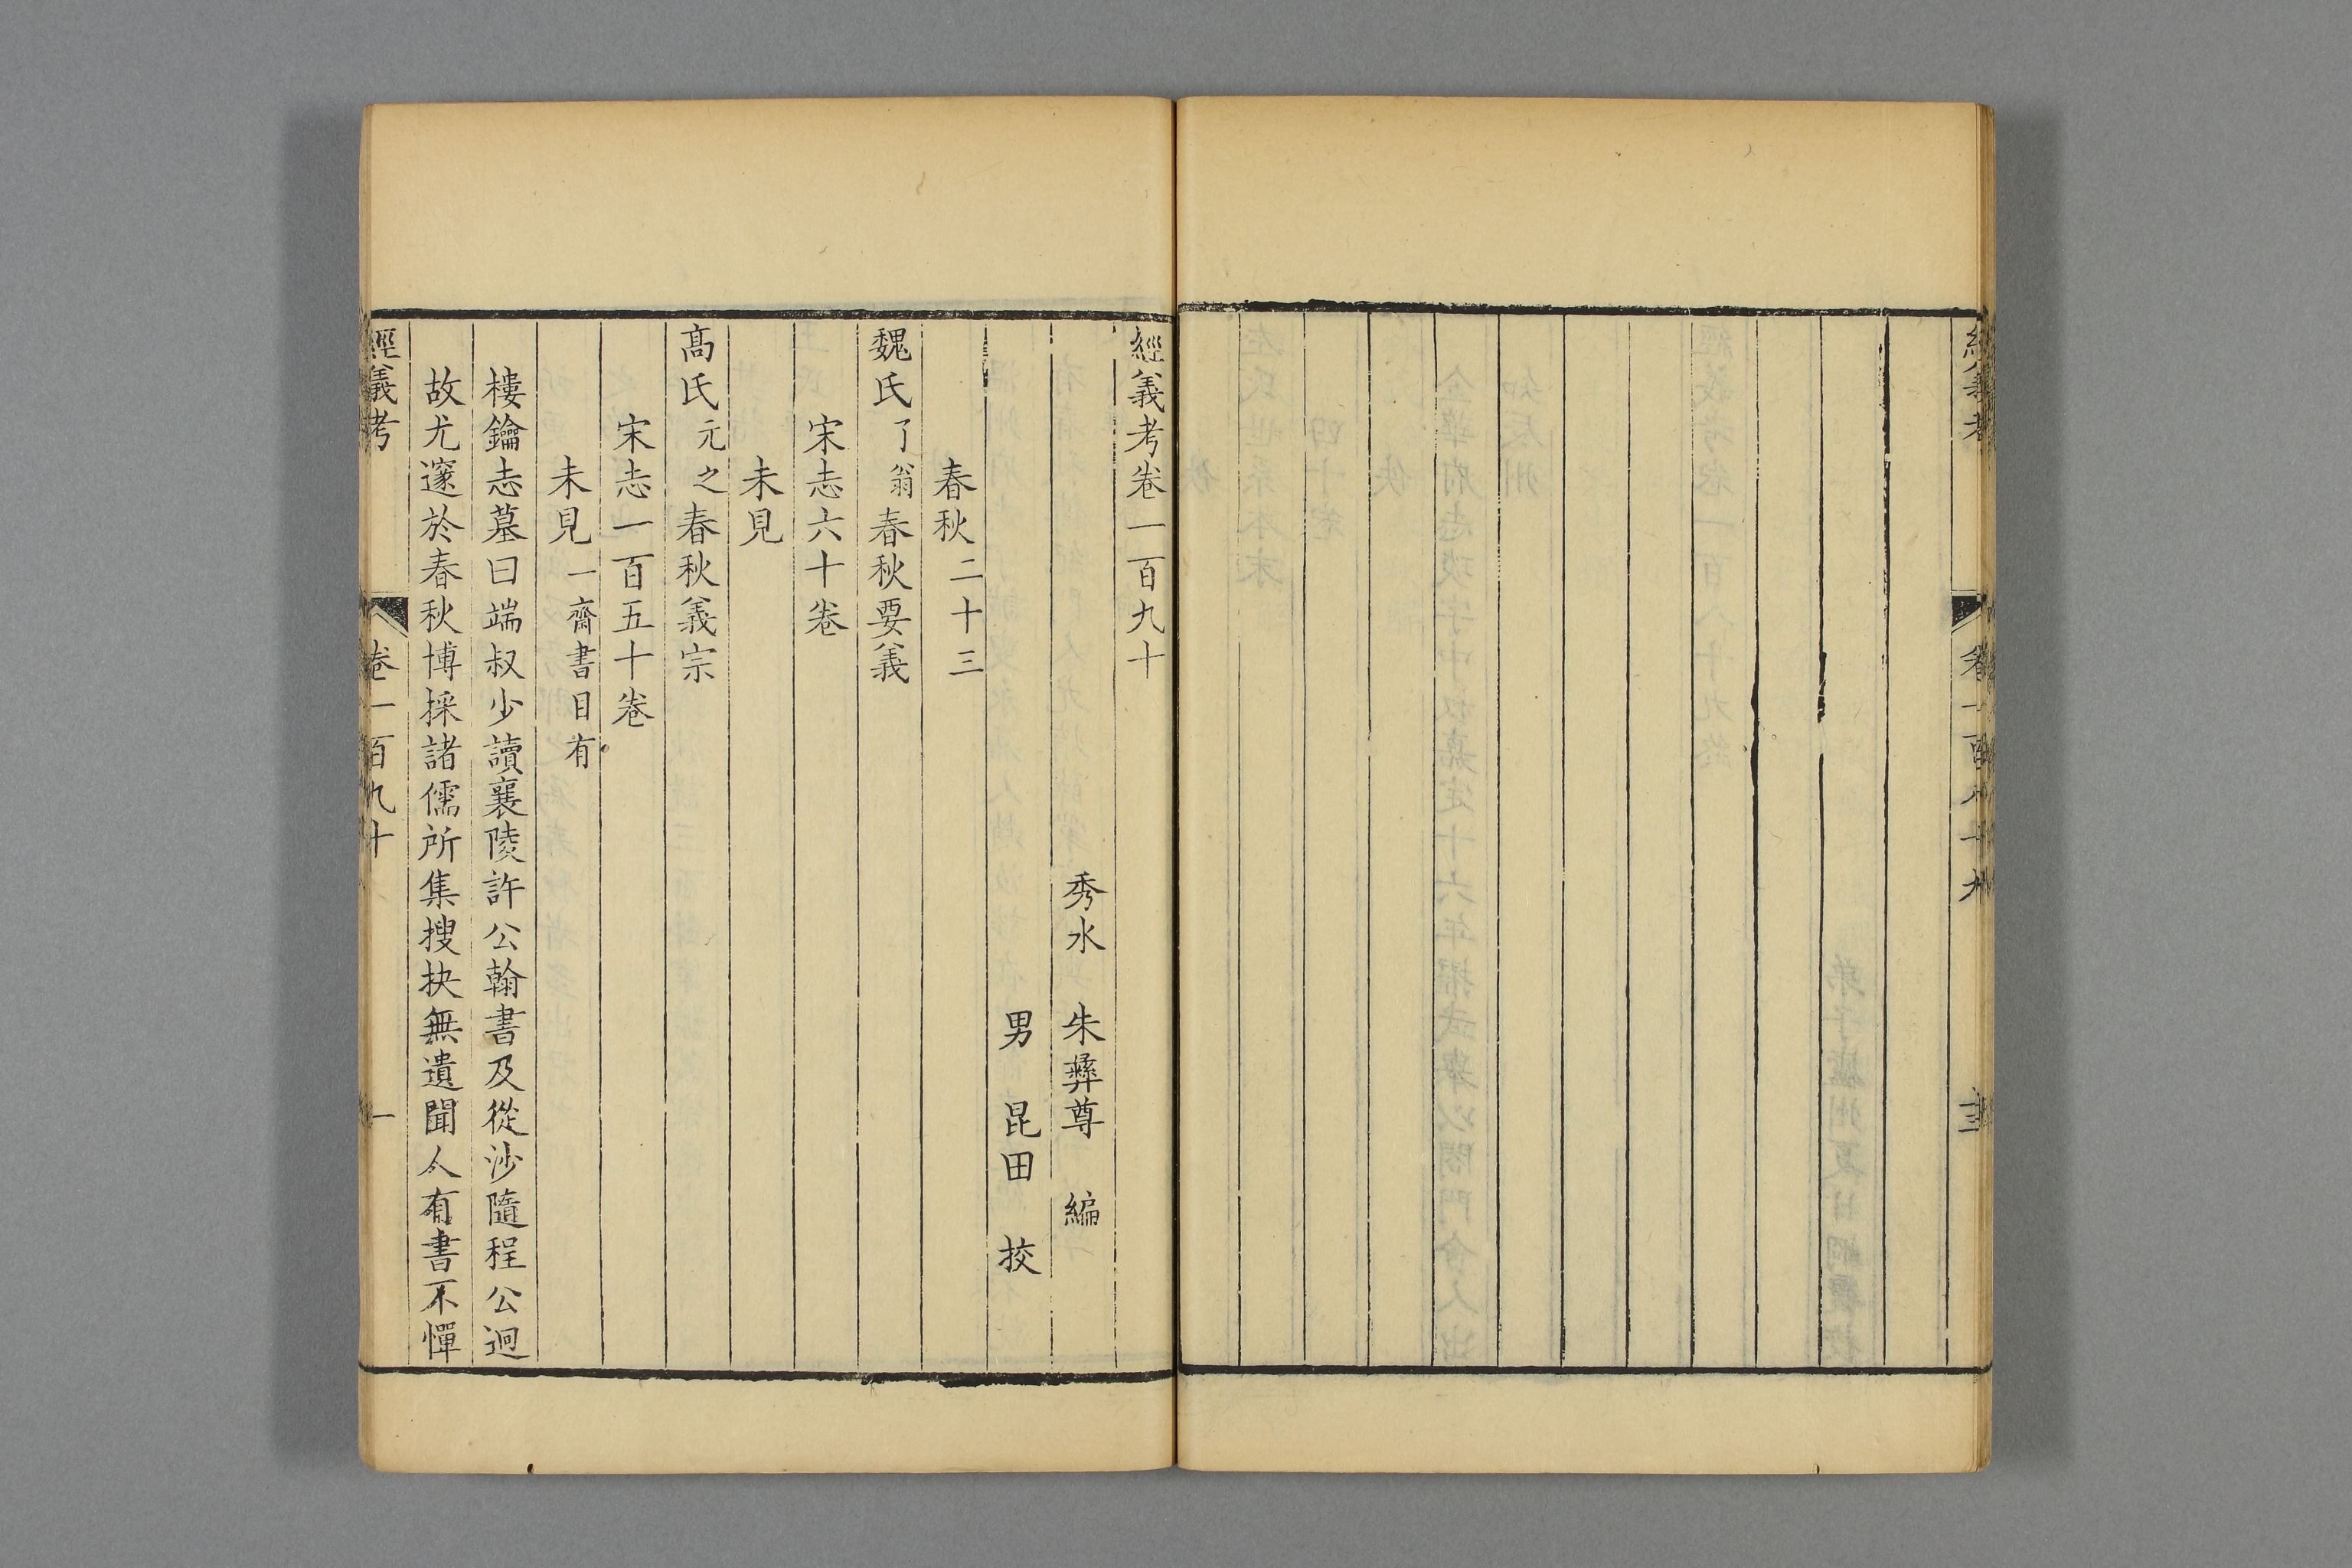 經義考卷一百九十
秀水 朱彝尊 編
男 昆田 挍
春秋二十三
魏氏了翁春秋要義
宋志六十卷
未見
高氏元之春秋義宗
宋志一百五十卷
未見一齋書目有
樓鑰志墓曰端叔少讀襄陵許公翰書及從沙隨程公迥
故尤邃於春秋博採諸儒所集搜抉無遺聞人有書不憚
經義考 卷一百九十 一